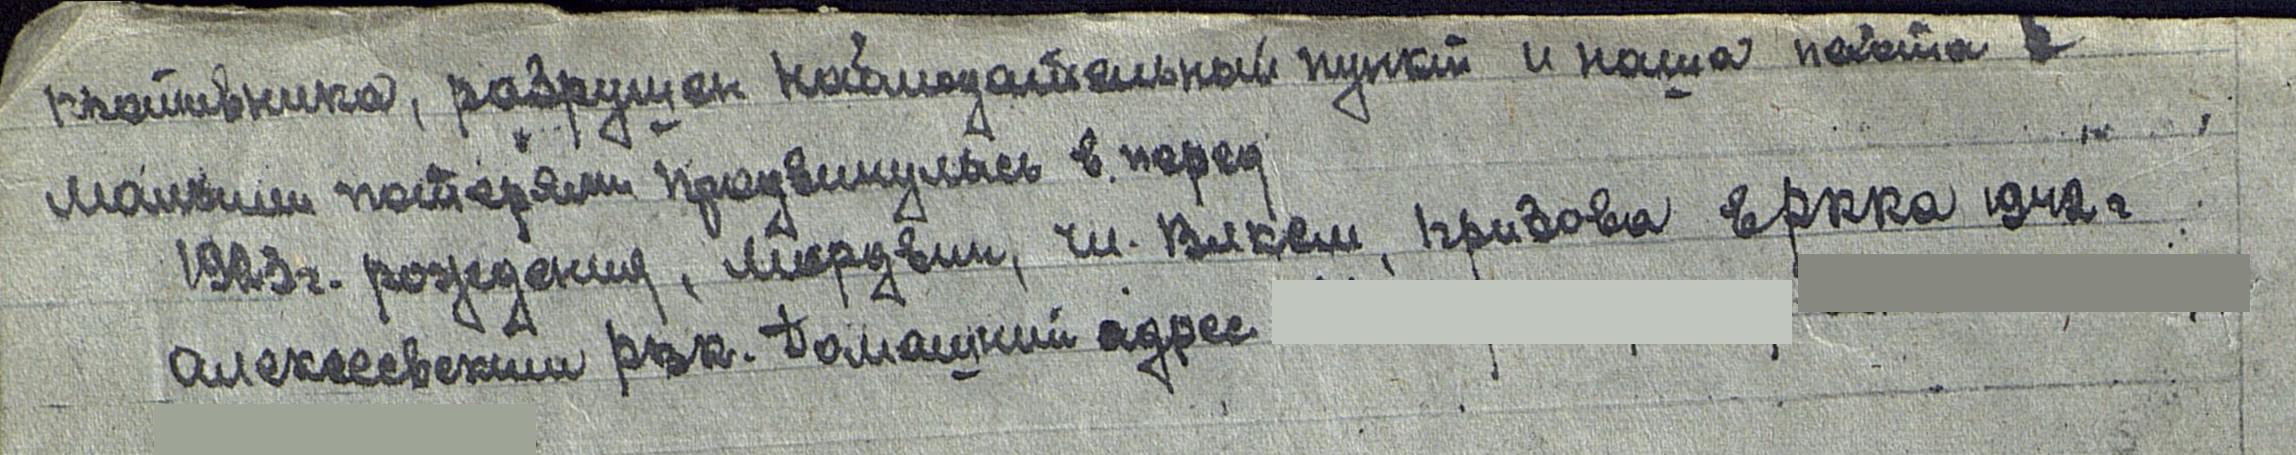 противника, разрушен наблюдательный пункт и наша пехота с
малыми потерями продвинулась в перед
1923г. рождения, Мордвин, чл. Влксм, призова в РККА 1942г
Алексеевским рвк. Домашний адрес